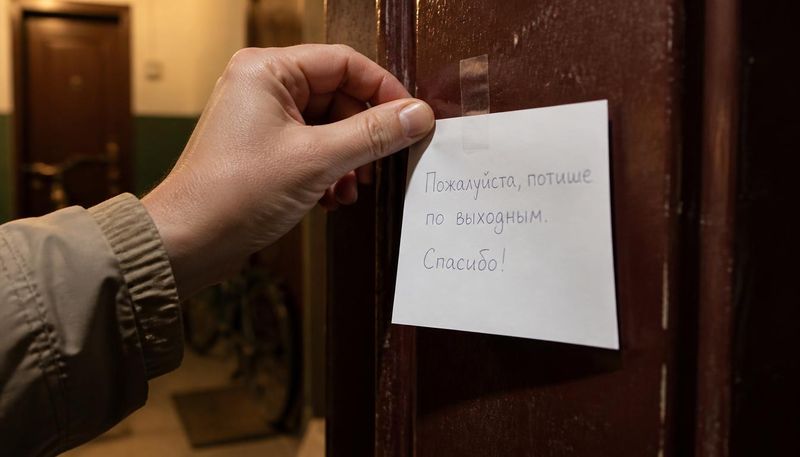 Пожалуйста, потише
по выходным.
Спасибо!